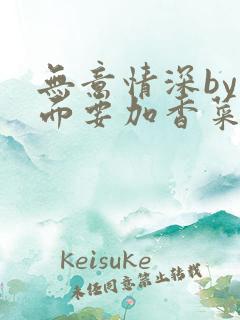 無意情深by
而要加香菜
Keisuke
未任同意禁止转载